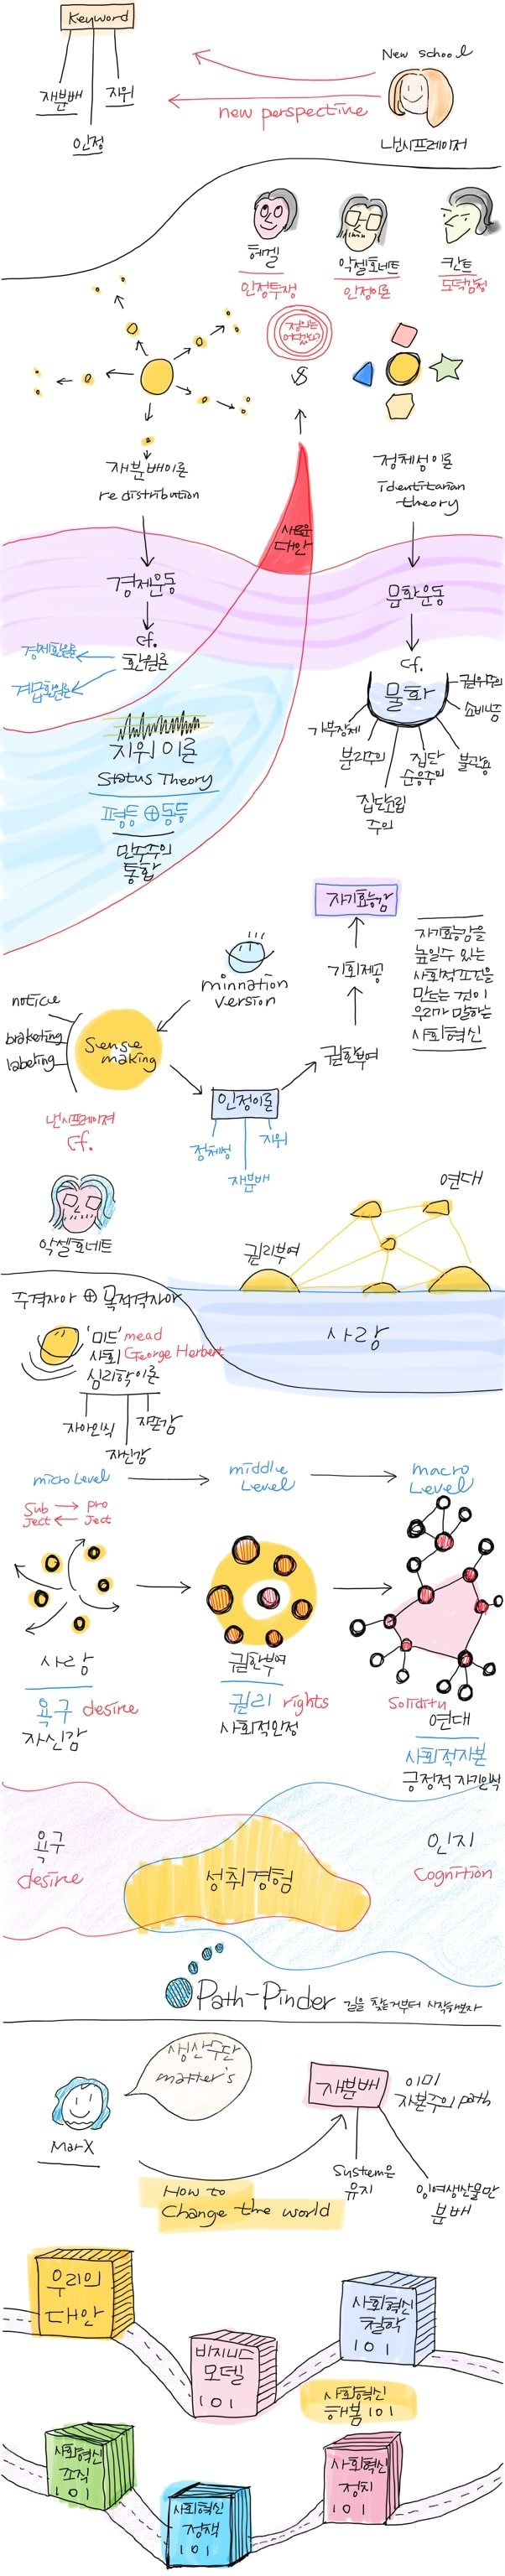 Keyword
재분배
지위
인정
New school
new perspective
낸시프레이저
헤겔
인정투쟁
악셀호네트
인정이론
칸트
도덕감정
정의는
어떻나?
vs
재분배이론
redistribution
정체성이론
identitarian
theory
새로운
대안
경제운동
cf.
환원론
경제환원론
계급환원론
문화운동
cf.
물화
가부장제
분리주의
집단
순응주의
불관용
집단고립
주의
지위이론
Status Theory
평등 ⊕ 동등
민주주의
통합
자기효능감
기회제공
권한부여
자기효능감을
높일수 있는
사회적조건을
만드는 것이
우리가 말하는
사회혁신
minnation
version
notice
braketing
labeling
Sense
making
인정이론
정체성
지위
재분배
낸시프레이져
cf.
악셀호네트
연대
권리부여
사랑
주격자아 ⊕ 목적격자아
'미드' mead
사회 George Herbert
심리학이론
자아인식
자신감
자존감
micro Level
middle
Level
macro
Level
Sub pro
ject ject
사랑
욕구 desire
자신감
권한부여
권리 rights
사회적인정
연대
사회적자본
긍정적 자기인식
욕구
desire
성취경험
인지
Cognition
Path-Pinder 길을 찾는거부터 시작해보자
생산수단
matter's
Marx
재분배
이미
자본주의 path
System은
유지
잉여생산물만
분배
How to
Change the world
우리의
대안
비지니스
모델
101
사회혁신
철학
101
사회혁신
해봄 101
사회혁신
조직
101
사회혁신
정책
101
사회혁신
정치
101